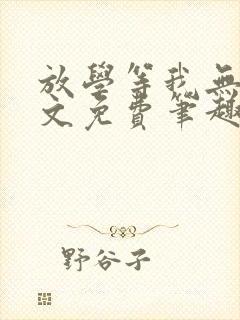 放學等我無
文免費筆趣
野谷子